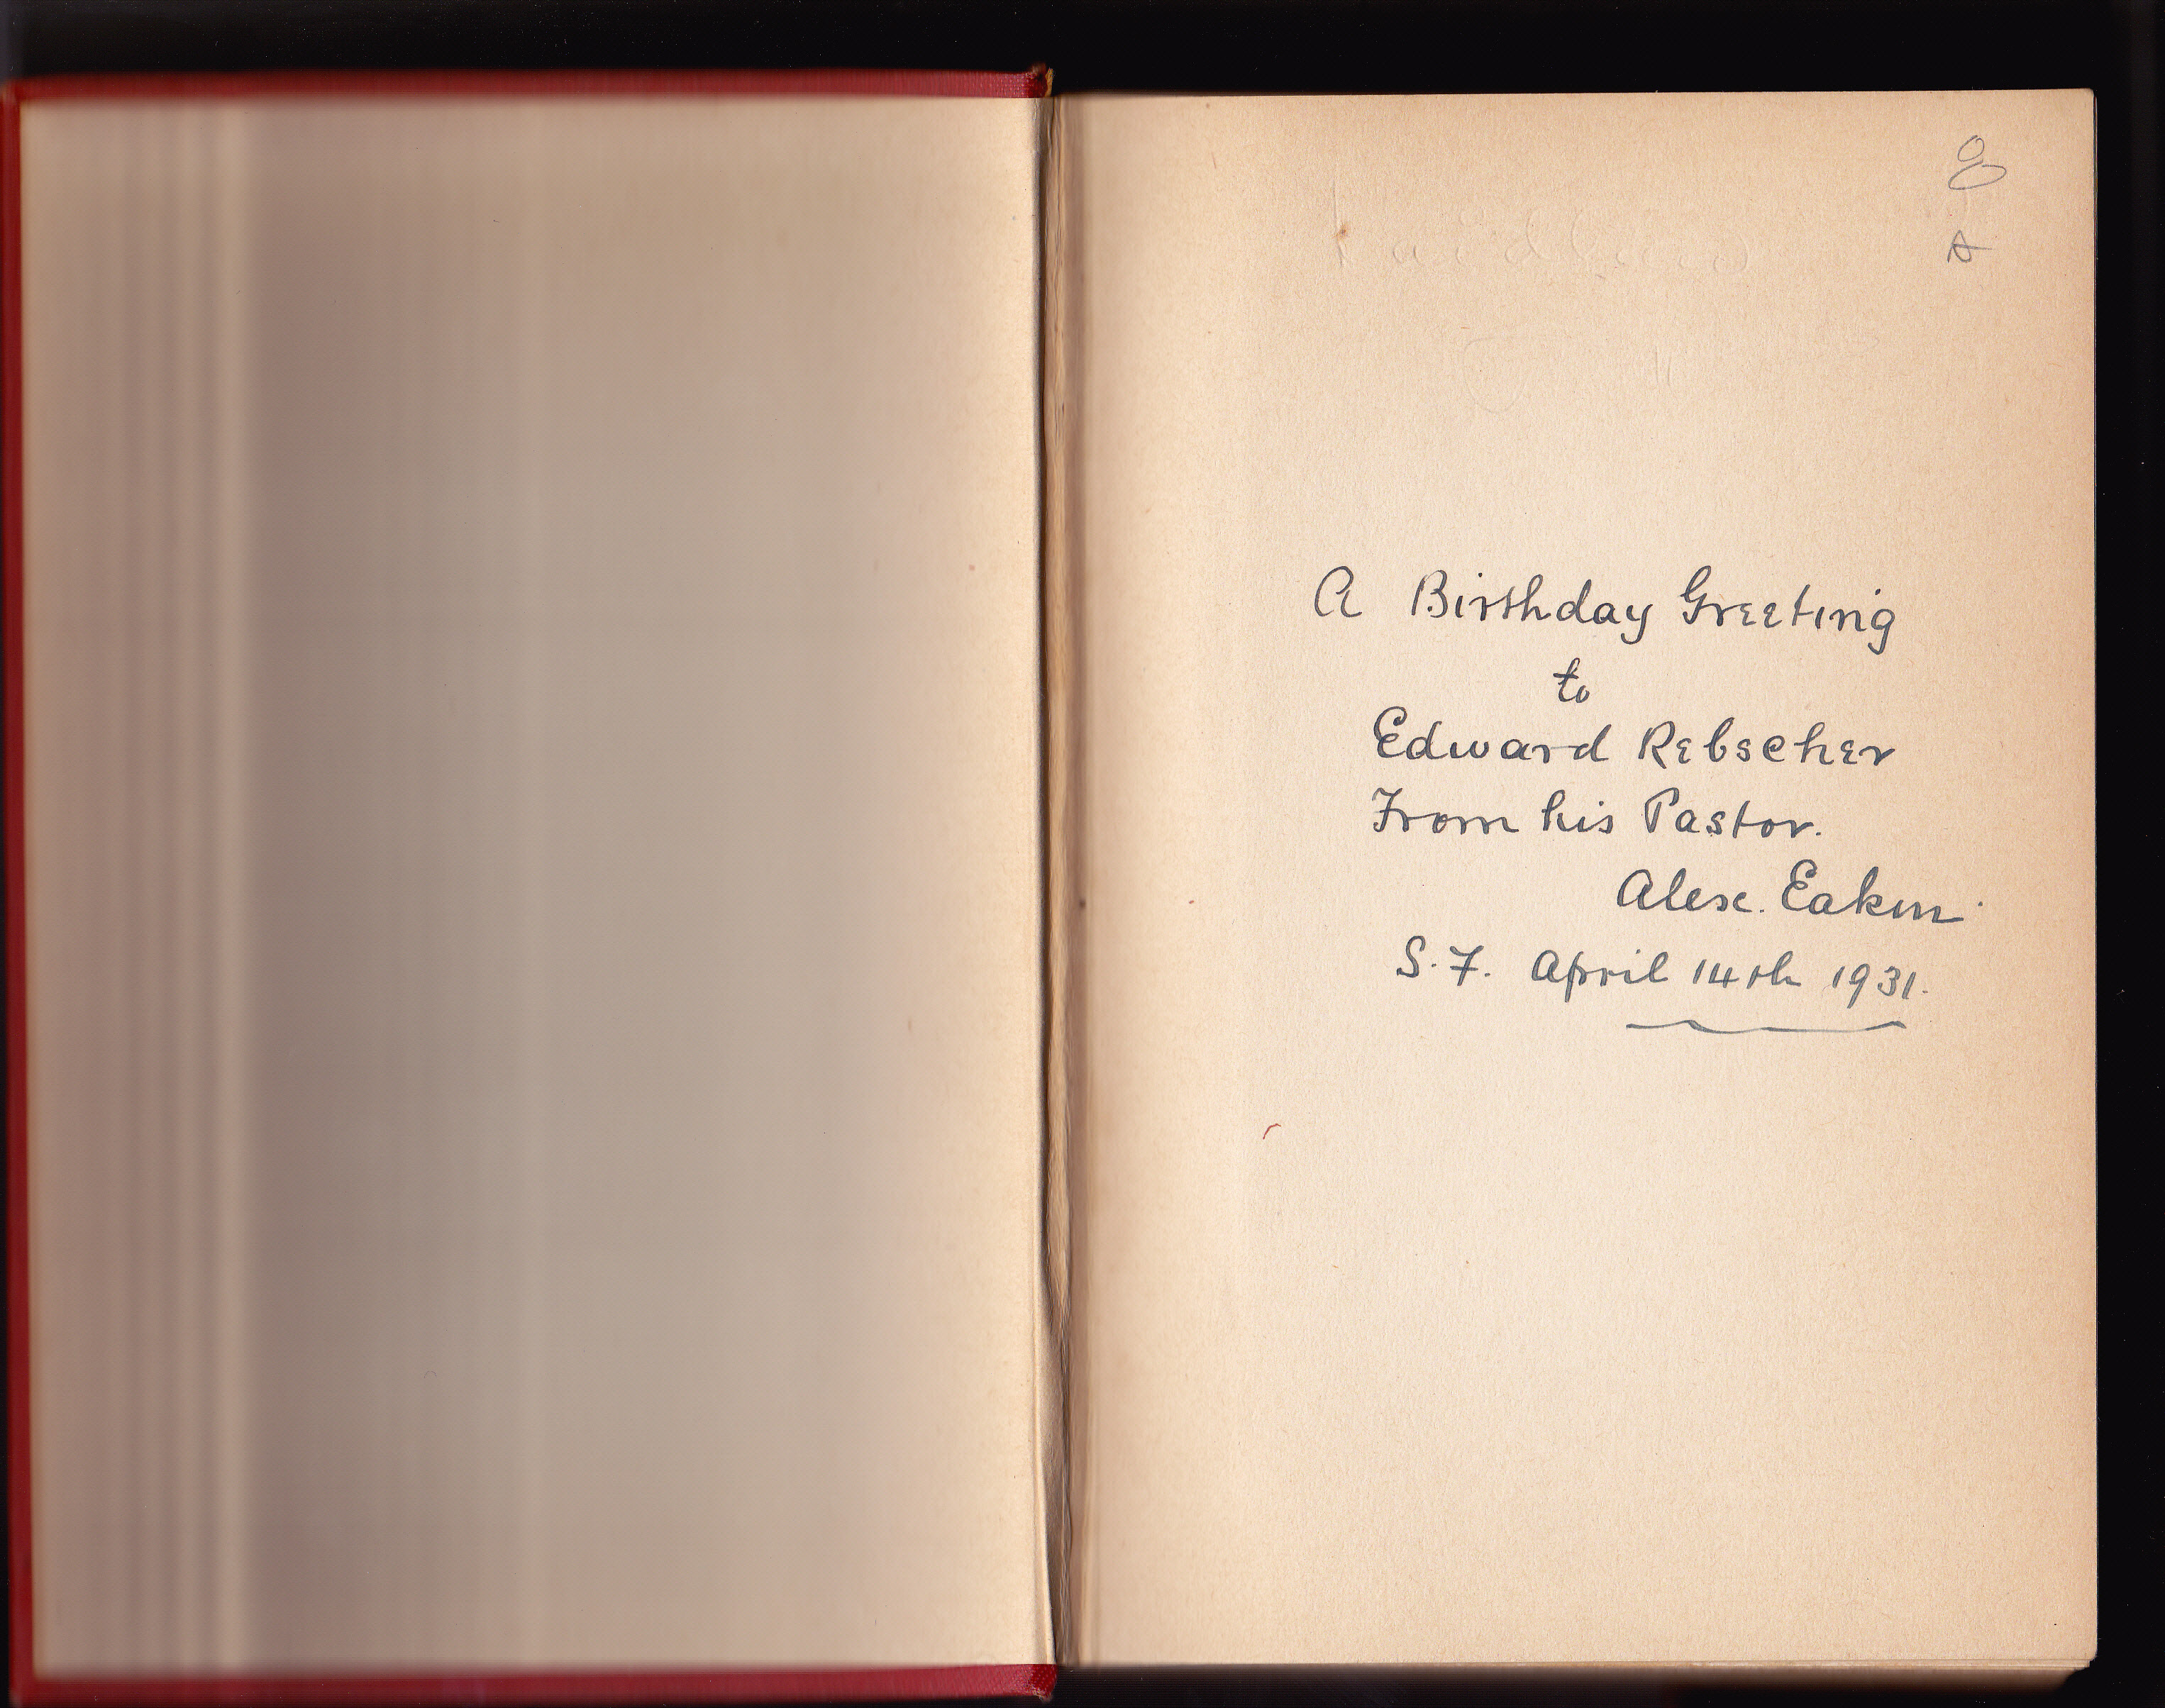 A Birthday Greeting
to
Edward Rebscher
From his Pastor.
Alex. Eakin.
S.F. April 14th 1931.